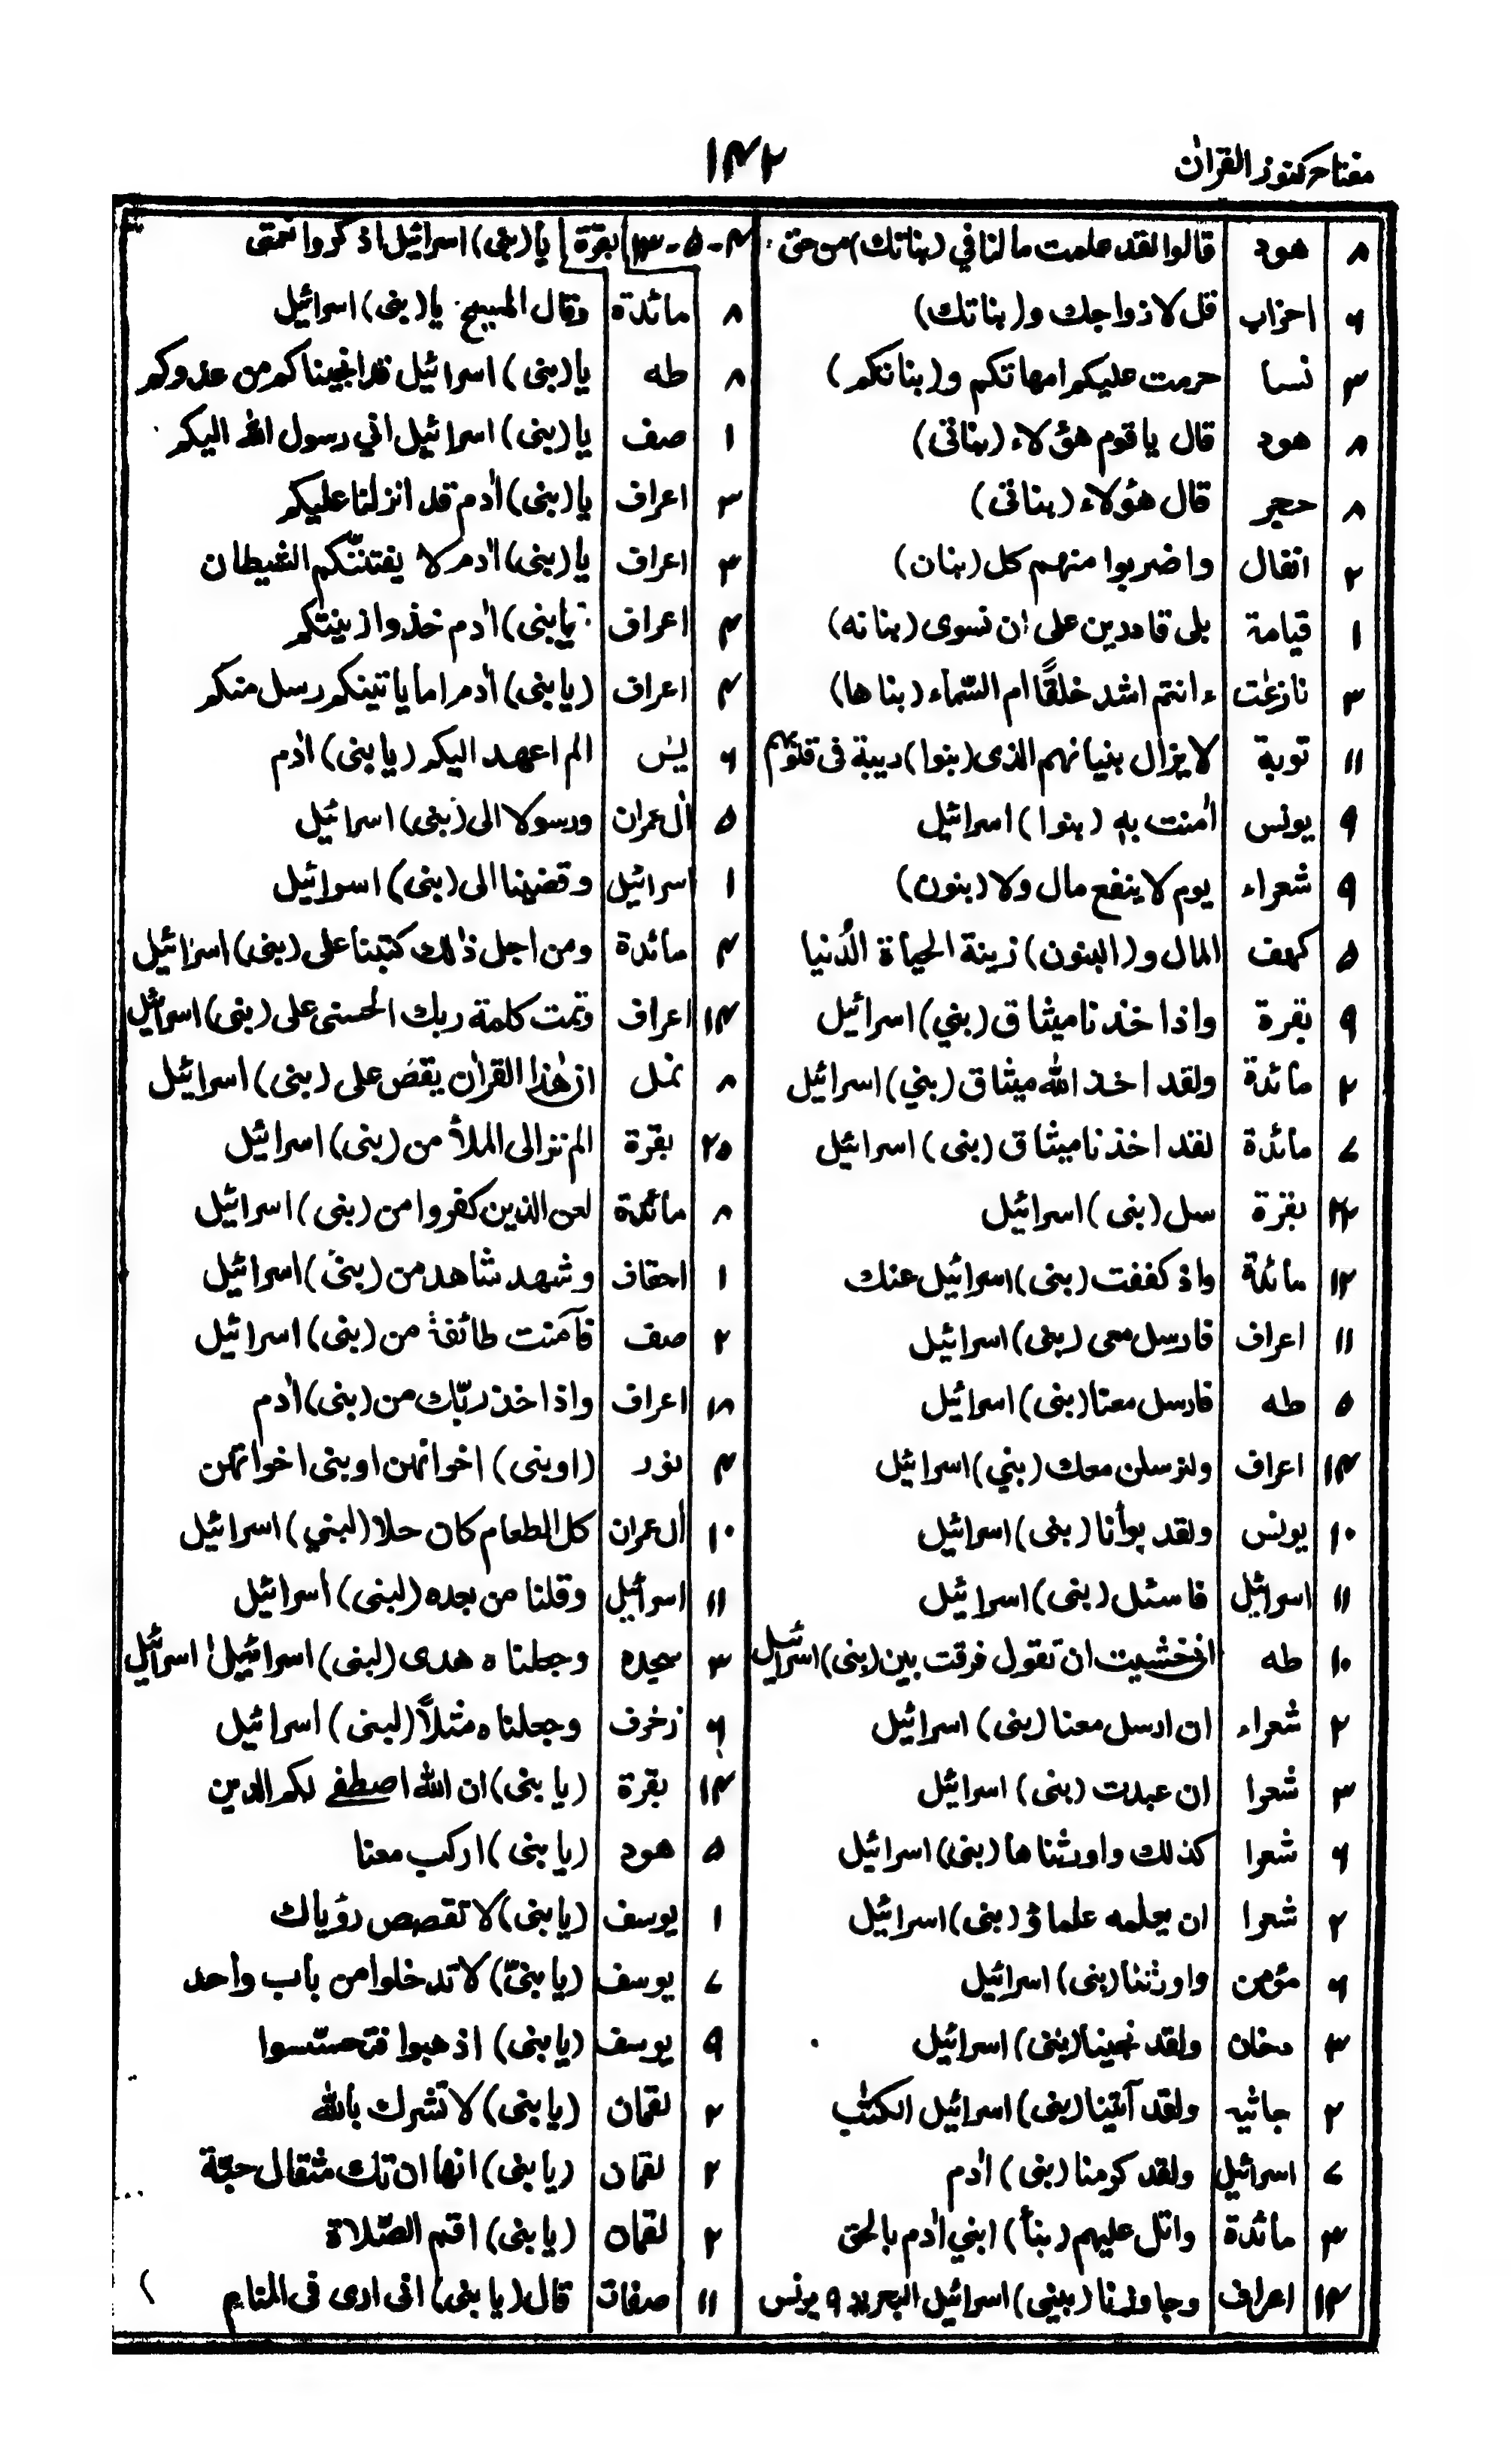 مفتاح كنوز القرآن
۱۴۲
۸ هود قالوا لقد علمت ما لنا في (بناتك) من حق
۶ احزاب قل لازواجك و(بناتك)
۳ نسا حرمت عليكم امهاتكم و(بناتكم)
۸ هود قال ياقوم هؤلاء (بناتى)
۸ حجر قال هؤلاء (بناتى)
۲ انفال واضربوا منهم كل (بنان)
۱ قيامة بلى قادرين على ان نسوى (بنانه)
۳ نازعٰت ءانتم اشد خلقًا ام السّماء (بناها)
۱۱ توبة لا يزال بنيانهم الذى (بنوا) ريبة فى قلوبهم
۹ يونس اٰمنت به (بنوا) اسرائيل
۹ شعراء يوم لا ينفع مال ولا (بنون)
۵ كهف المال و(البنون) زينة الحياة الدُنيا
۹ بقرة واذا خذنا ميثاق (بني) اسرائيل
۲ مائدة ولقد اخذ الله ميثاق (بني) اسرائيل
۷ مائدة لقد اخذنا ميثاق (بنى) اسرائيل
۲۶ بقرة سل (بنى) اسرائيل
۱۲ مائدة واذ كففت (بنى) اسرائيل عنك
۱۱ اعراف فارسل معى (بنى) اسرائيل
۵ طه فارسل معنا (بنى) اسرائيل
۱۴ اعراف ولنرسلن معك (بني) اسرائيل
۱۰ يونس ولقد بوأنا (بنى) اسرائيل
۱۱ اسرائيل فاسئل (بنى) اسرائيل
۱۰ طه انى خشيت ان تقول فرقت بين (بنى) اسرائيل
۲ شعراء ان ارسل معنا (بنى) اسرائيل
۳ شعرا ان عبدت (بنى) اسرائيل
۶ شعرا كذلك واورثناها (بنى) اسرائيل
۲ شعرا ان يعلمه علماؤ (بنى) اسرائيل
۶ مؤمن واورثنا (بنى) اسرائيل
۳ دخان ولقد نجينا (بنى) اسرائيل
۲ جاثيه ولقد آتينا (بنى) اسرائيل الكتٰب
۷ اسرائيل ولقد كرمنا (بنى) اٰدم
۳ مائدة واتل عليهم (بنأ) ابني اٰدم بالحق
۱۴ اعراف وجاوزنا (ببنى) اسرائيل البحر ۹ يونس
۴-۵-۳ بقرة يا (بنى) اسرائيل اذكروا نعمتى
۸ مائدة وقال المسيح يا (بنى) اسرائيل
۸ طه يا (بنى) اسرائيل قد انجيناكم من عدوكم
۱ صف يا (بنى) اسرائيل اني رسول الله اليكم
۳ اعراف يا (بنى) اٰدم قد انزلنا عليكم
۳ اعراف يا (بنى) اٰدم لا يفتننّكم الشيطان
۴ اعراف (يابنى) اٰدم خذوا زينتكم
۴ اعراف (يابنى) اٰدم اما ياتينكم رسل منكم
۶ يٰس الم اعهد اليكم (يا بنى) اٰدم
۵ اٰل عمران ورسولا الى (بنى) اسرائيل
۱ اسرائيل وقضينا الى (بنى) اسرائيل
۴ مائدة ومن اجل ذٰلك كتبنا على (بنى) اسرائيل
۱۴ اعراف وتمت كلمة ربك الحسنى على (بنى) اسرائيل
۸ نمل ان هٰذا القراٰن يقص على (بنى) اسرائيل
۲۵ بقرة الم تر الى الملأ من (بنى) اسرائيل
۸ مائدة لعن الذين كفروا من (بنى) اسرائيل
۱ احقاف وشهد شاهد من (بنى) اسرائيل
۲ صف فآمنت طائفة من (بنى) اسرائيل
۱۸ اعراف واذا خذ ربّك من (بنى) اٰدم
۴ نور (اوبنى) اخوانهن اوبنى اخواتهن
۱۰ اٰل عمران كل الطعام كان حلا (لبني) اسرائيل
۱۱ اسرائيل وقلنا من بعده (لبنى) اسرائيل
۳ سجده وجعلناه هدى (لبنى) اسرائيل ا اسرائيل
۶ زخرف وجعلناه مثلاً (لبنى) اسرائيل
۱۴ بقرة (يا بنى) ان الله اصطفى لكم الدين
۵ هود (يا بنى) اركب معنا
۱ يوسف (يا بنى) لا تقصص رؤياك
۷ يوسف (يا بنىّ) لا تدخلوا من باب واحد
۹ يوسف (يا بنى) اذهبوا فتحسّسوا
۲ لقمان (يا بنى) لا تشرك بالله
۲ لقمان (يا بنى) انها ان تك مثقال حبّة
۲ لقمان (يا بنى) اقم الصّلاة
۱۱ صفات قال (يا بنى) انى ارى فى المنام